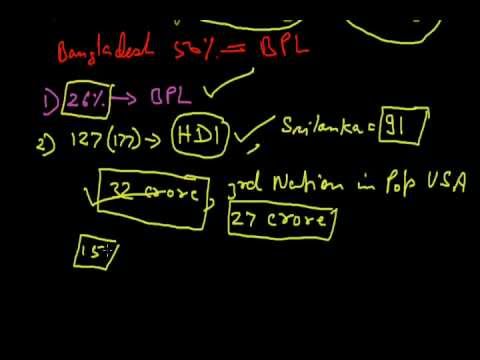 Bangladesh 50% = BPL
1) 26% → BPL ✓
2) 127 (177) → HDI ✓ Srilanka = 91
32 crore, 3rd Nation in Pop USA
27 crore
15